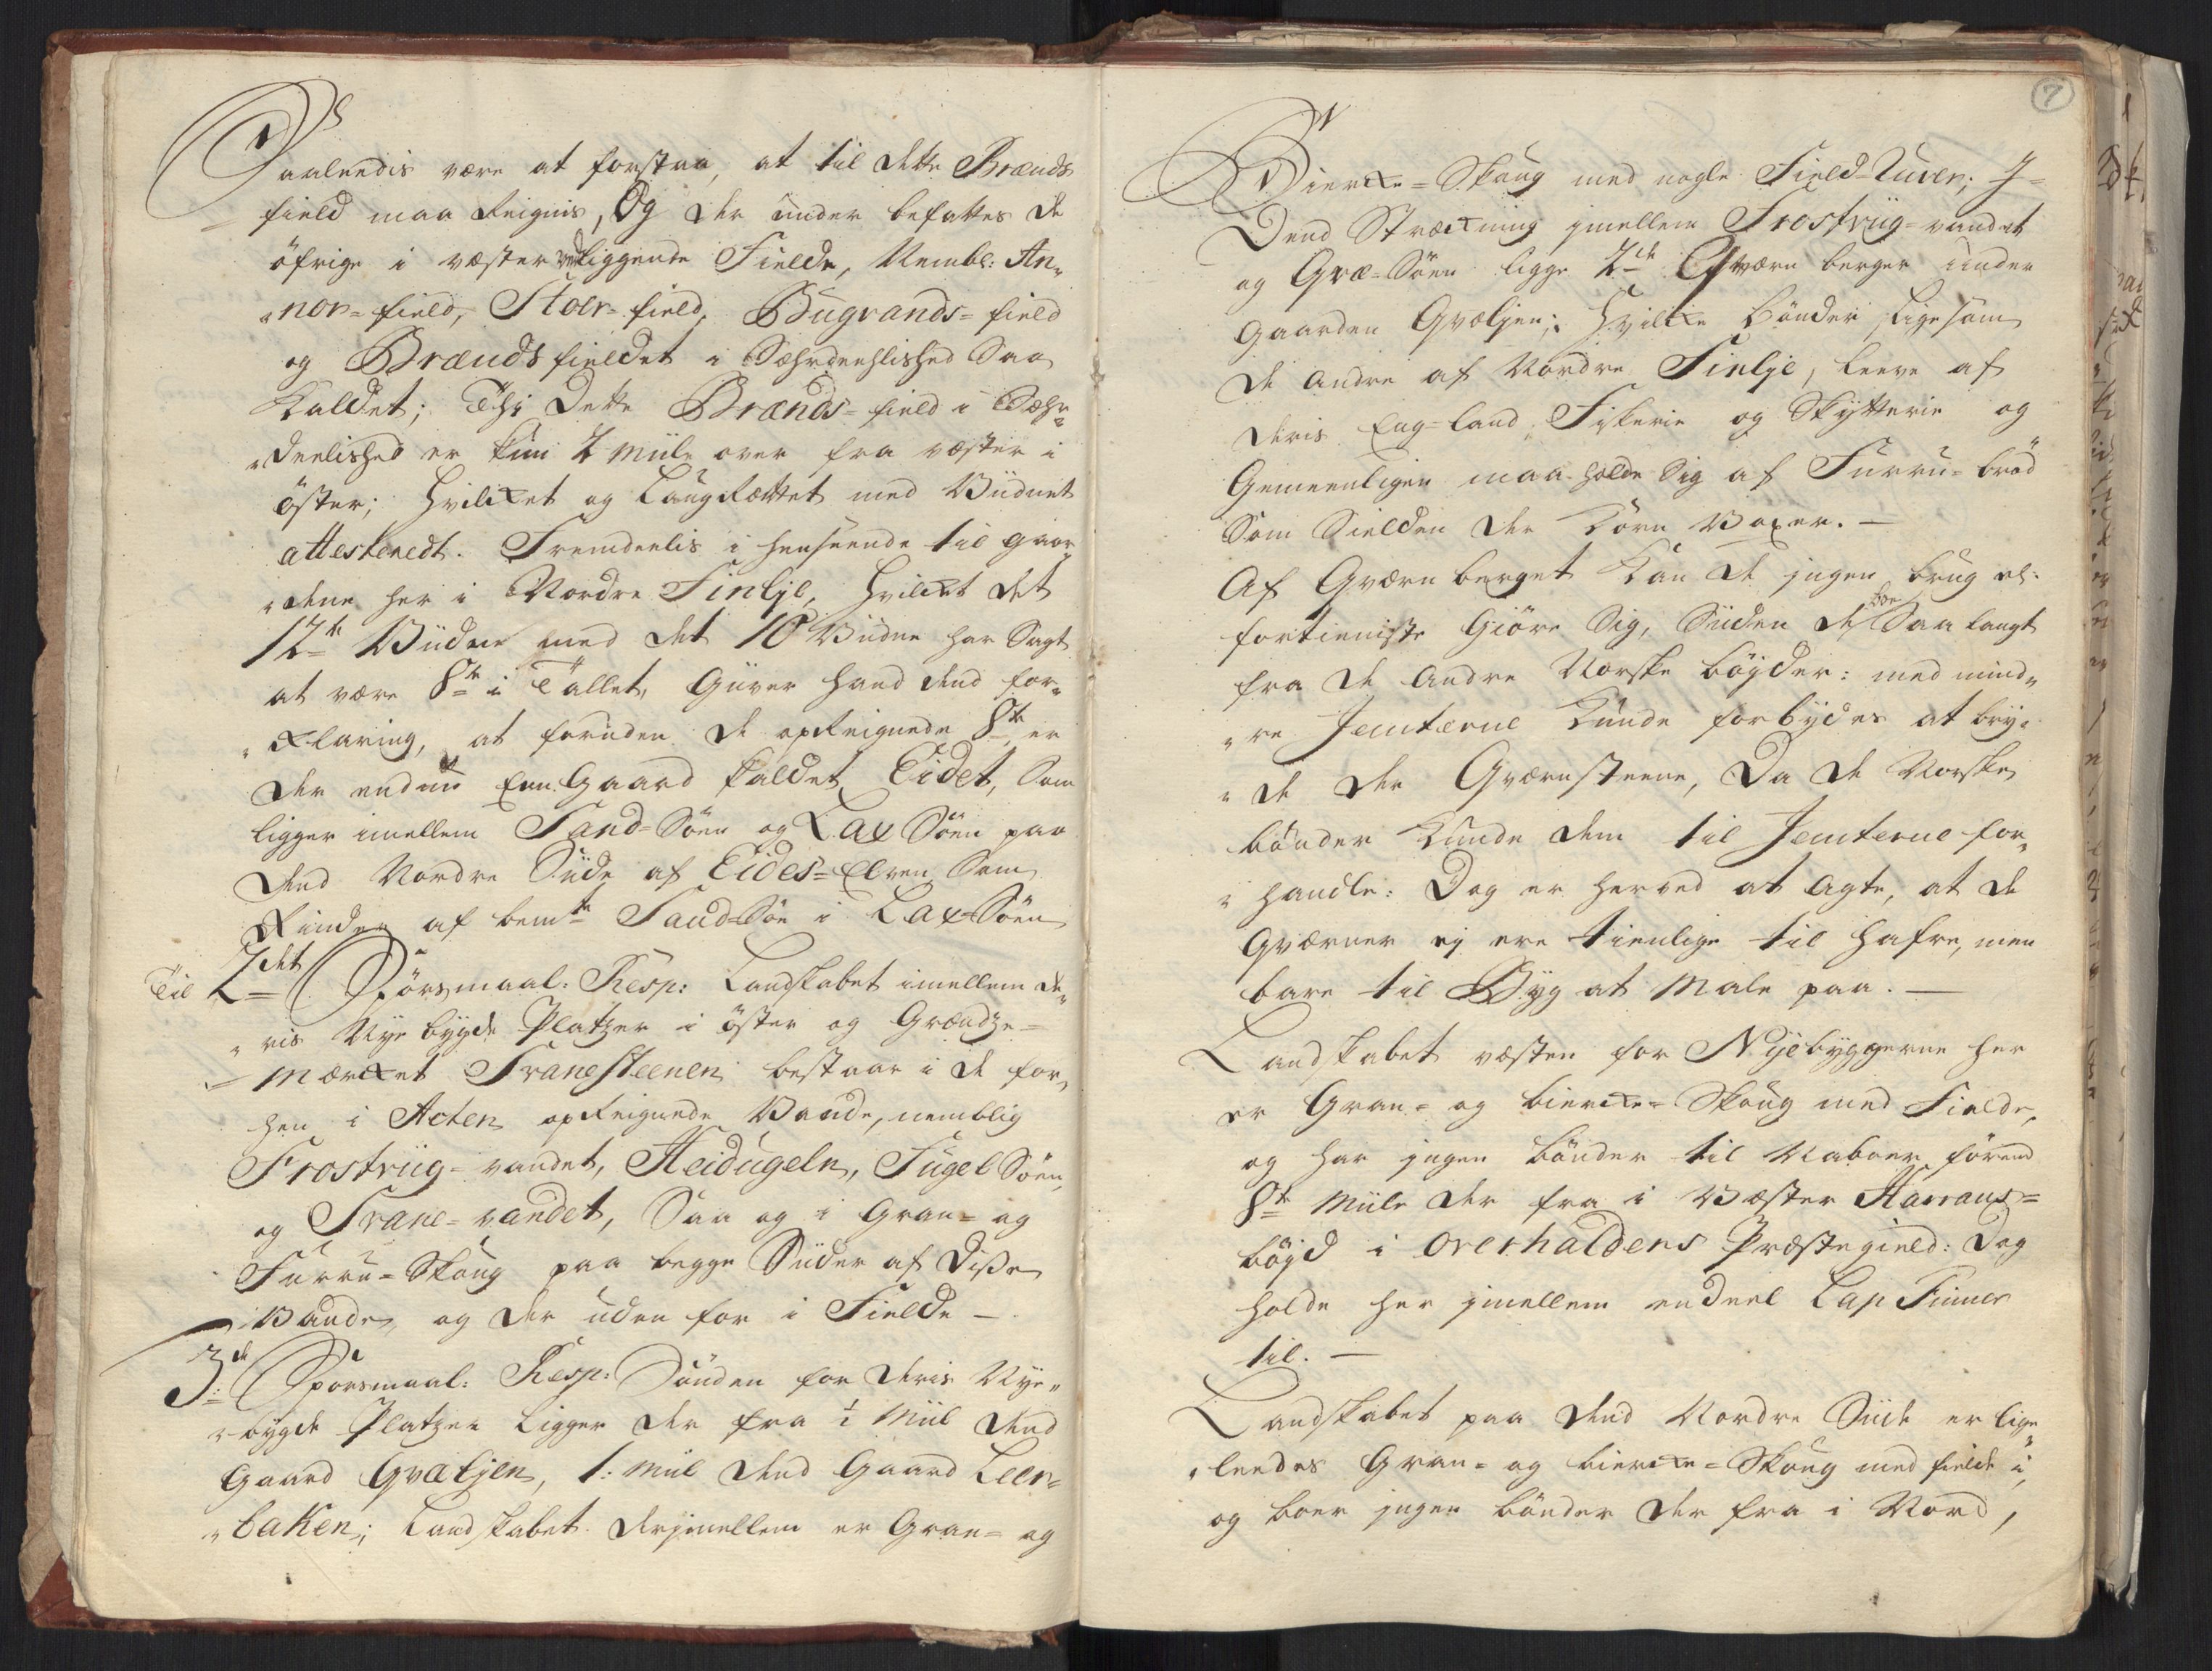 Saaleedis være at forstaa, at til dette Brænds
field maa Reignis, Og der under befattes de
öfrige i væster ved liggende Fielde, Nembl: An„
„nor=field, Stoer=field, Bugvands=field
og Brændsfieldet i Sæhrdeehlished Saa
Kaldet; Thi Dette Brænds=field i Sæhr„
„deelished er kun 2 Miile over fra væster i
öster; Hvilcket og LaugRættet med Viidnet
attesterede. Fremdeelis i henseende til gaar„
„dene her i Nordre Finlje, Hvilcket det
12te Viidne med det 10 Viidne har Sagt
at være 8te i Tallet, Giiver hand dend for„
„Klaring, at foruden de opReignede 8te er
der endnu Een Gaard kaldet Eidet, Som
ligger imellem Sand=Söen og Lax Söen paa
dend Nordre Siide af Eides=Elven Som
Rinder af bemte Sand=Söe i Lax=Söen
Til 2det Spörsmaal: Resp: Landskabet imellem de„
„ris Nye bygde Platzer i öster og Grændze=
Mærcket Tranesteenen bestaar i de for„
hen i Acten opReignede Vande, nemblig
Frostviig=vandet, Heidugeln, Fugel Söen,
og Trane=vandet, Saa og i Gran= og
Furru=Skoug paa begge Siider af Disse
Vande, og der uden for i Fielde —
3de Spörsmaal: Resp: Sönden for deris Nye„
„bygde Platzer Ligger der fra ½ Miil dend
Gaard Qvæljen, 1: Miil dend Gaard Leer„
„baken; Landskabet derimellem er Gran= og
7
Biercke=Skoug med nogle Field=Tuver; I
Dend Stræckning imellem Frostviig=vandet
og Qvæ=Söen ligge 2de Qværn berger under
Gaarden Qvæljen; Hvilcke bönder, Ligesom
de andre af Nordre Finlje, Leeve af
deris Eng=Land, Fiskerie og Skytterie og
Gemeenligen maa holde Sig af Furru=bröd
Som Sielden der Korn Voxer. —
Af Qværn berget Kan de ingen brug el:
fortieniste Giöre Sig, Siiden de boe Saa langt
fra de andre Norske böyder: med mind„
„re Jemterne Kunde forbydes at bry„
„de der Qværnsteene, Da de Norske
bönder Kunde dem til Jemterne for„
„handle: Dog er herved at Agte, at de
Qværner ej ere tienlige til Hafre, men
bare til Byg at Male paa. —
Landskabet væsten for Nyebyggerne her
er Gran= og biercke=Skoug med Fielde,
og har ingen bönder til Naboer förend
8te Miile der fra i Væster Harrans=
böyd i Overhaldens Præstegield: Dog
holde her imellem endeel Lap Finner
til. —
Landskabet paa dend Nordre Siide er lige„
„leedes Gran= og biercke=Skoug med fielde i,
og boer ingen bönder der fra i Nord,